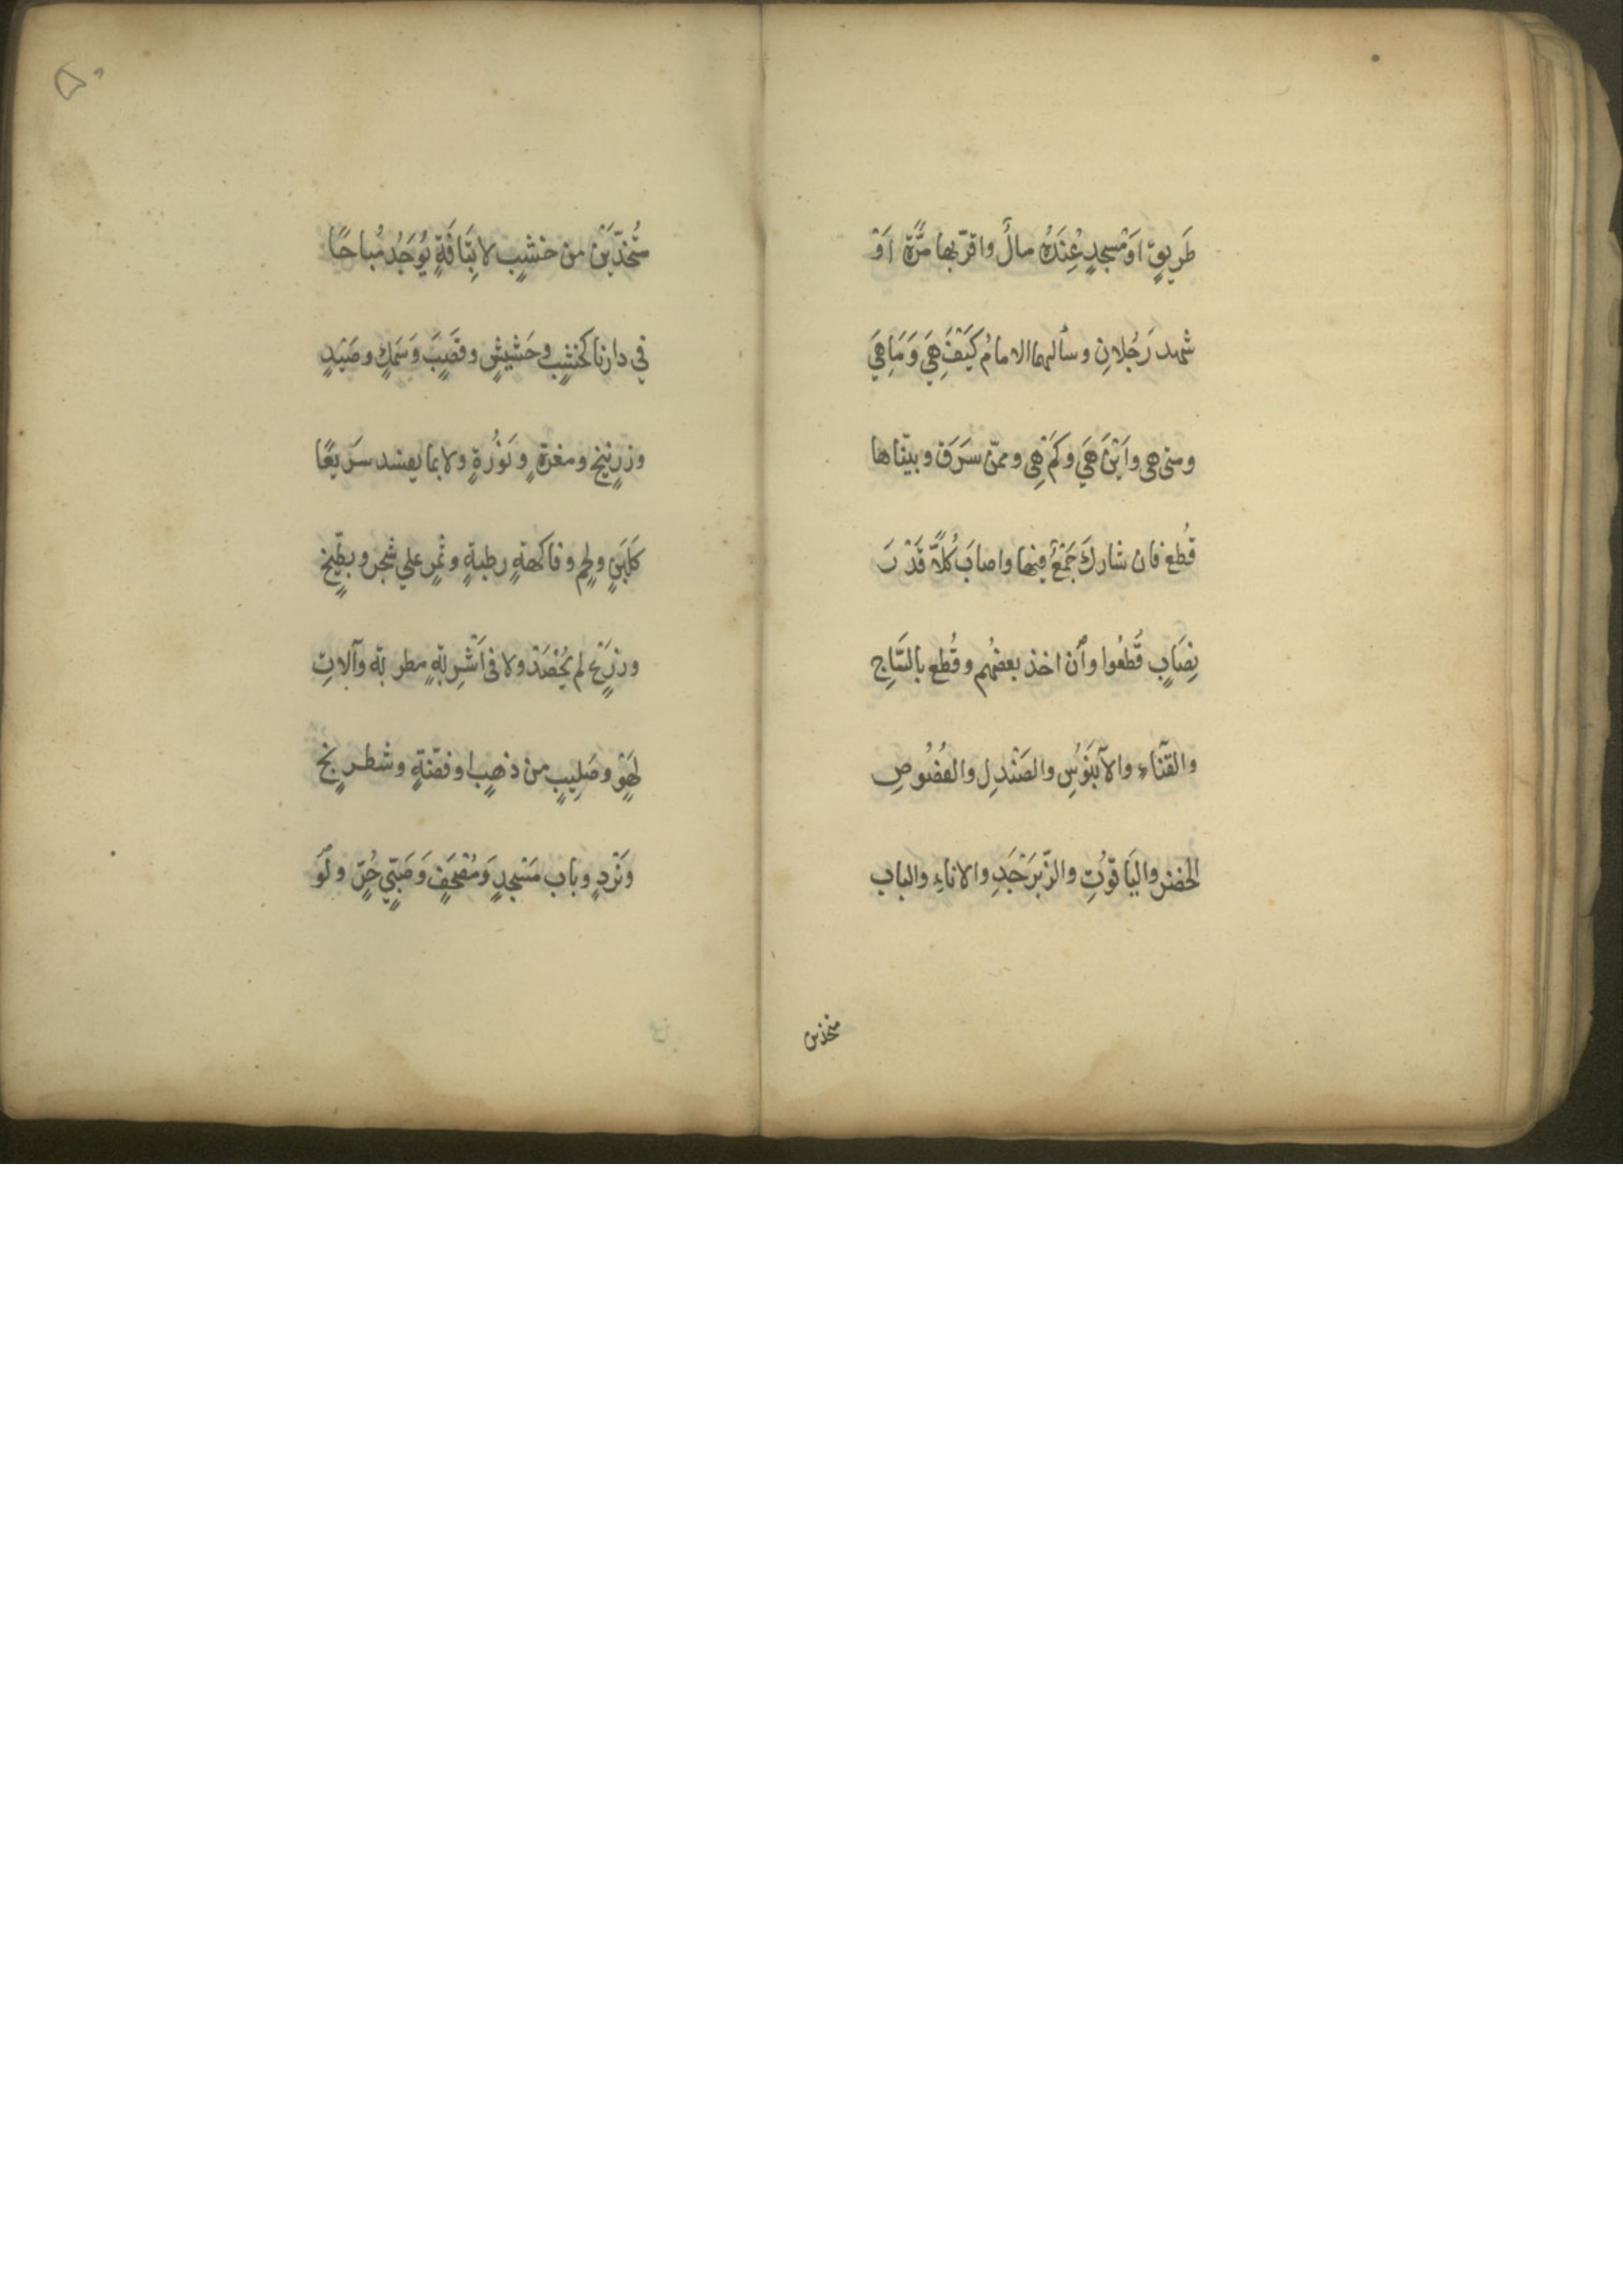 طَرِيقٍ اَوْ مسجدٍ عِنْدَهُ مالٌ واقرّ بها مَرَّةً اَوْ
شهد رَجُلانِ وسألهما الامامُ كَيْفَ هِيَ وَمَا هِيَ
ومتى هى واَيْنَ هِيَ وكَمْ هِى وممّن سَرَقَ وبيّناها
قُطع فان شاركَ جَمْعٌ فيها واصابَ كُلاًّ قَدْرَ
نِصَابٍ قُطعُوا وأن اخذ بعضهُم وقُطع بالسَّاجِ
والقَنَاءِ والآبَنُوسِ والصَنْدلِ والفُصُوصِ
الخضر واليَاقوُتِ والزّبَرْجَدِ والاناءِ والباب
متخذين
٥٠
مُتَّخذَيْن من خشبٍ لا بِتَافَهٍ يُوجَدُ مُباحًا
في دارنا كخشبٍ وحَشيشٍ وقَصَبٍ وَسَمَكٍ وصَيْدٍ
وزرنيخٍ ومغرةٍ وَنُوْرَةٍ ولا بما يفسد سَرِيعًا
كَلَبَنٍ ولحمٍ وفاكهةٍ رطبةٍ وثمرٍ علي شجر وبطّيخٍ
وزَرْعٍ لم يُحْصَدْ ولا فى اَشْرِبَةٍ مطربة وآلاتِ
لَهْوٍ وصَلِيبٍ من ذهبٍ او فضّةٍ وشطرنجٍ
وَنَرْدٍ وباب مَسْجدٍ وَمُصْحَفٍ وَصَبِّي حُرٍّ ولَوْ